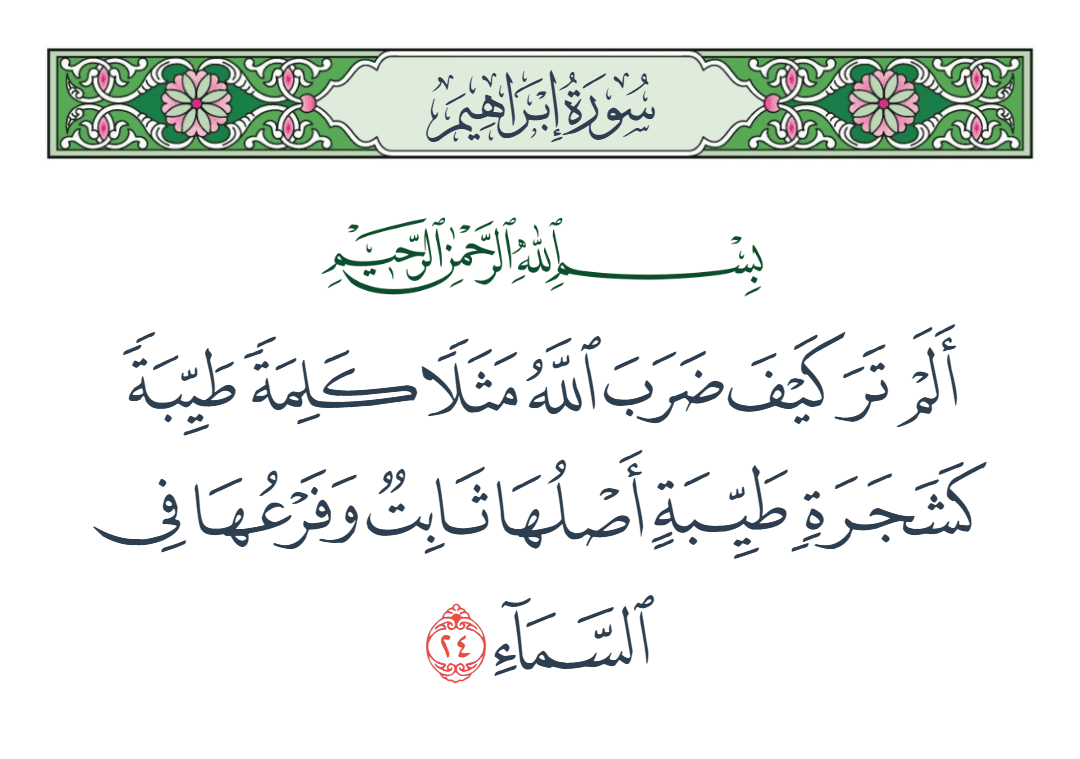 سُورَةُ إِبۡرَاهِيمَ
بِسۡمِ ٱللَّهِ ٱلرَّحۡمَٰنِ ٱلرَّحِيمِ
أَلَمۡ تَرَ كَيۡفَ ضَرَبَ ٱللَّهُ مَثَلٗا كَلِمَةٗ طَيِّبَةٗ
كَشَجَرَةٖ طَيِّبَةٍ أَصۡلُهَا ثَابِتٞ وَفَرۡعُهَا فِي
ٱلسَّمَآءِ ٢٤